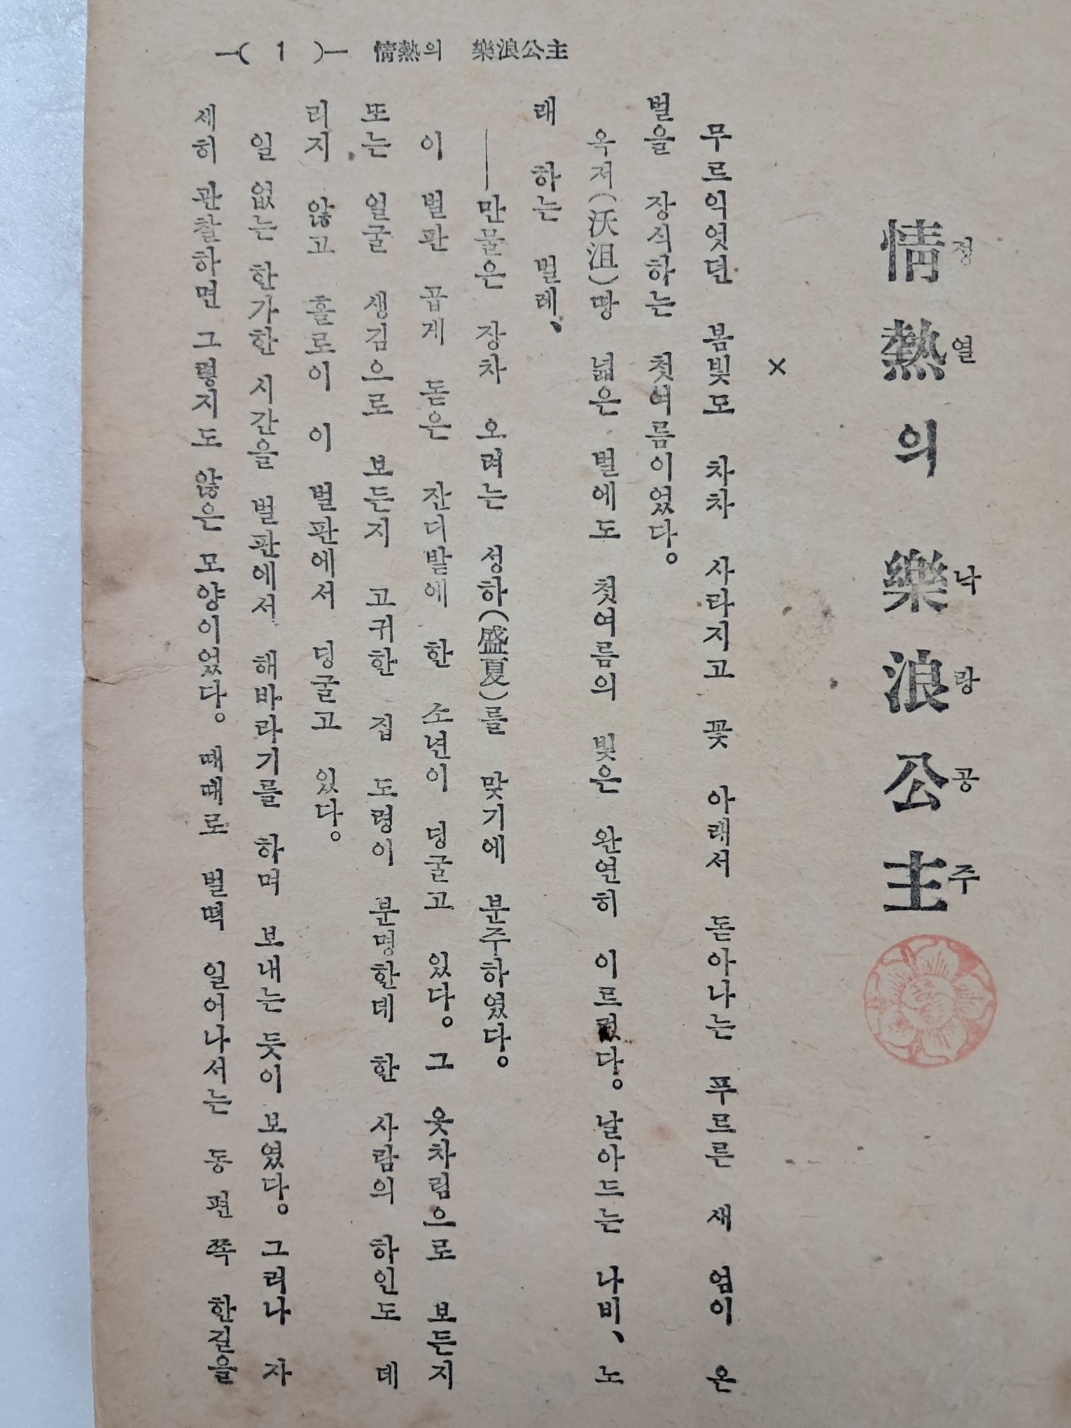 —( 1 )— 情熱의 樂浪公主
情熱의 樂浪公主
정열 나랑공주
×
무르익엇던 봄빛모 차차 사라지고 꽃 아래서 돋아나는 푸르른 새 엄이 온
벌을 장식하는 첫여름이었다。
옥저(沃沮)땅 넓은 벌에도 첫여름의 빛은 완연히 이르렀다。날아드는 나비、노
래 하는 벌레、
——만물은 장차 오려는 성하(盛夏)를 맞기에 분주하였다。
이 벌판 곱게 돋은 잔디밭에 한 소년이 딩굴고 있다。그 옷차림으로 보든지
또는 얼굴 생김으로 보든지 고귀한 집 도령이 분명한데 한 사람의 하인도 데
리지 않고 홀로이 이 벌판에서 딩굴고 있다。
일 없는 한가한 시간을 벌판에서 해바라기를 하며 보내는 듯이 보였다。그러나 자
세히 관찰하면 그렇지도 않은 모양이었다。때때로 벌떡 일어나서는 동편쪽 한길을